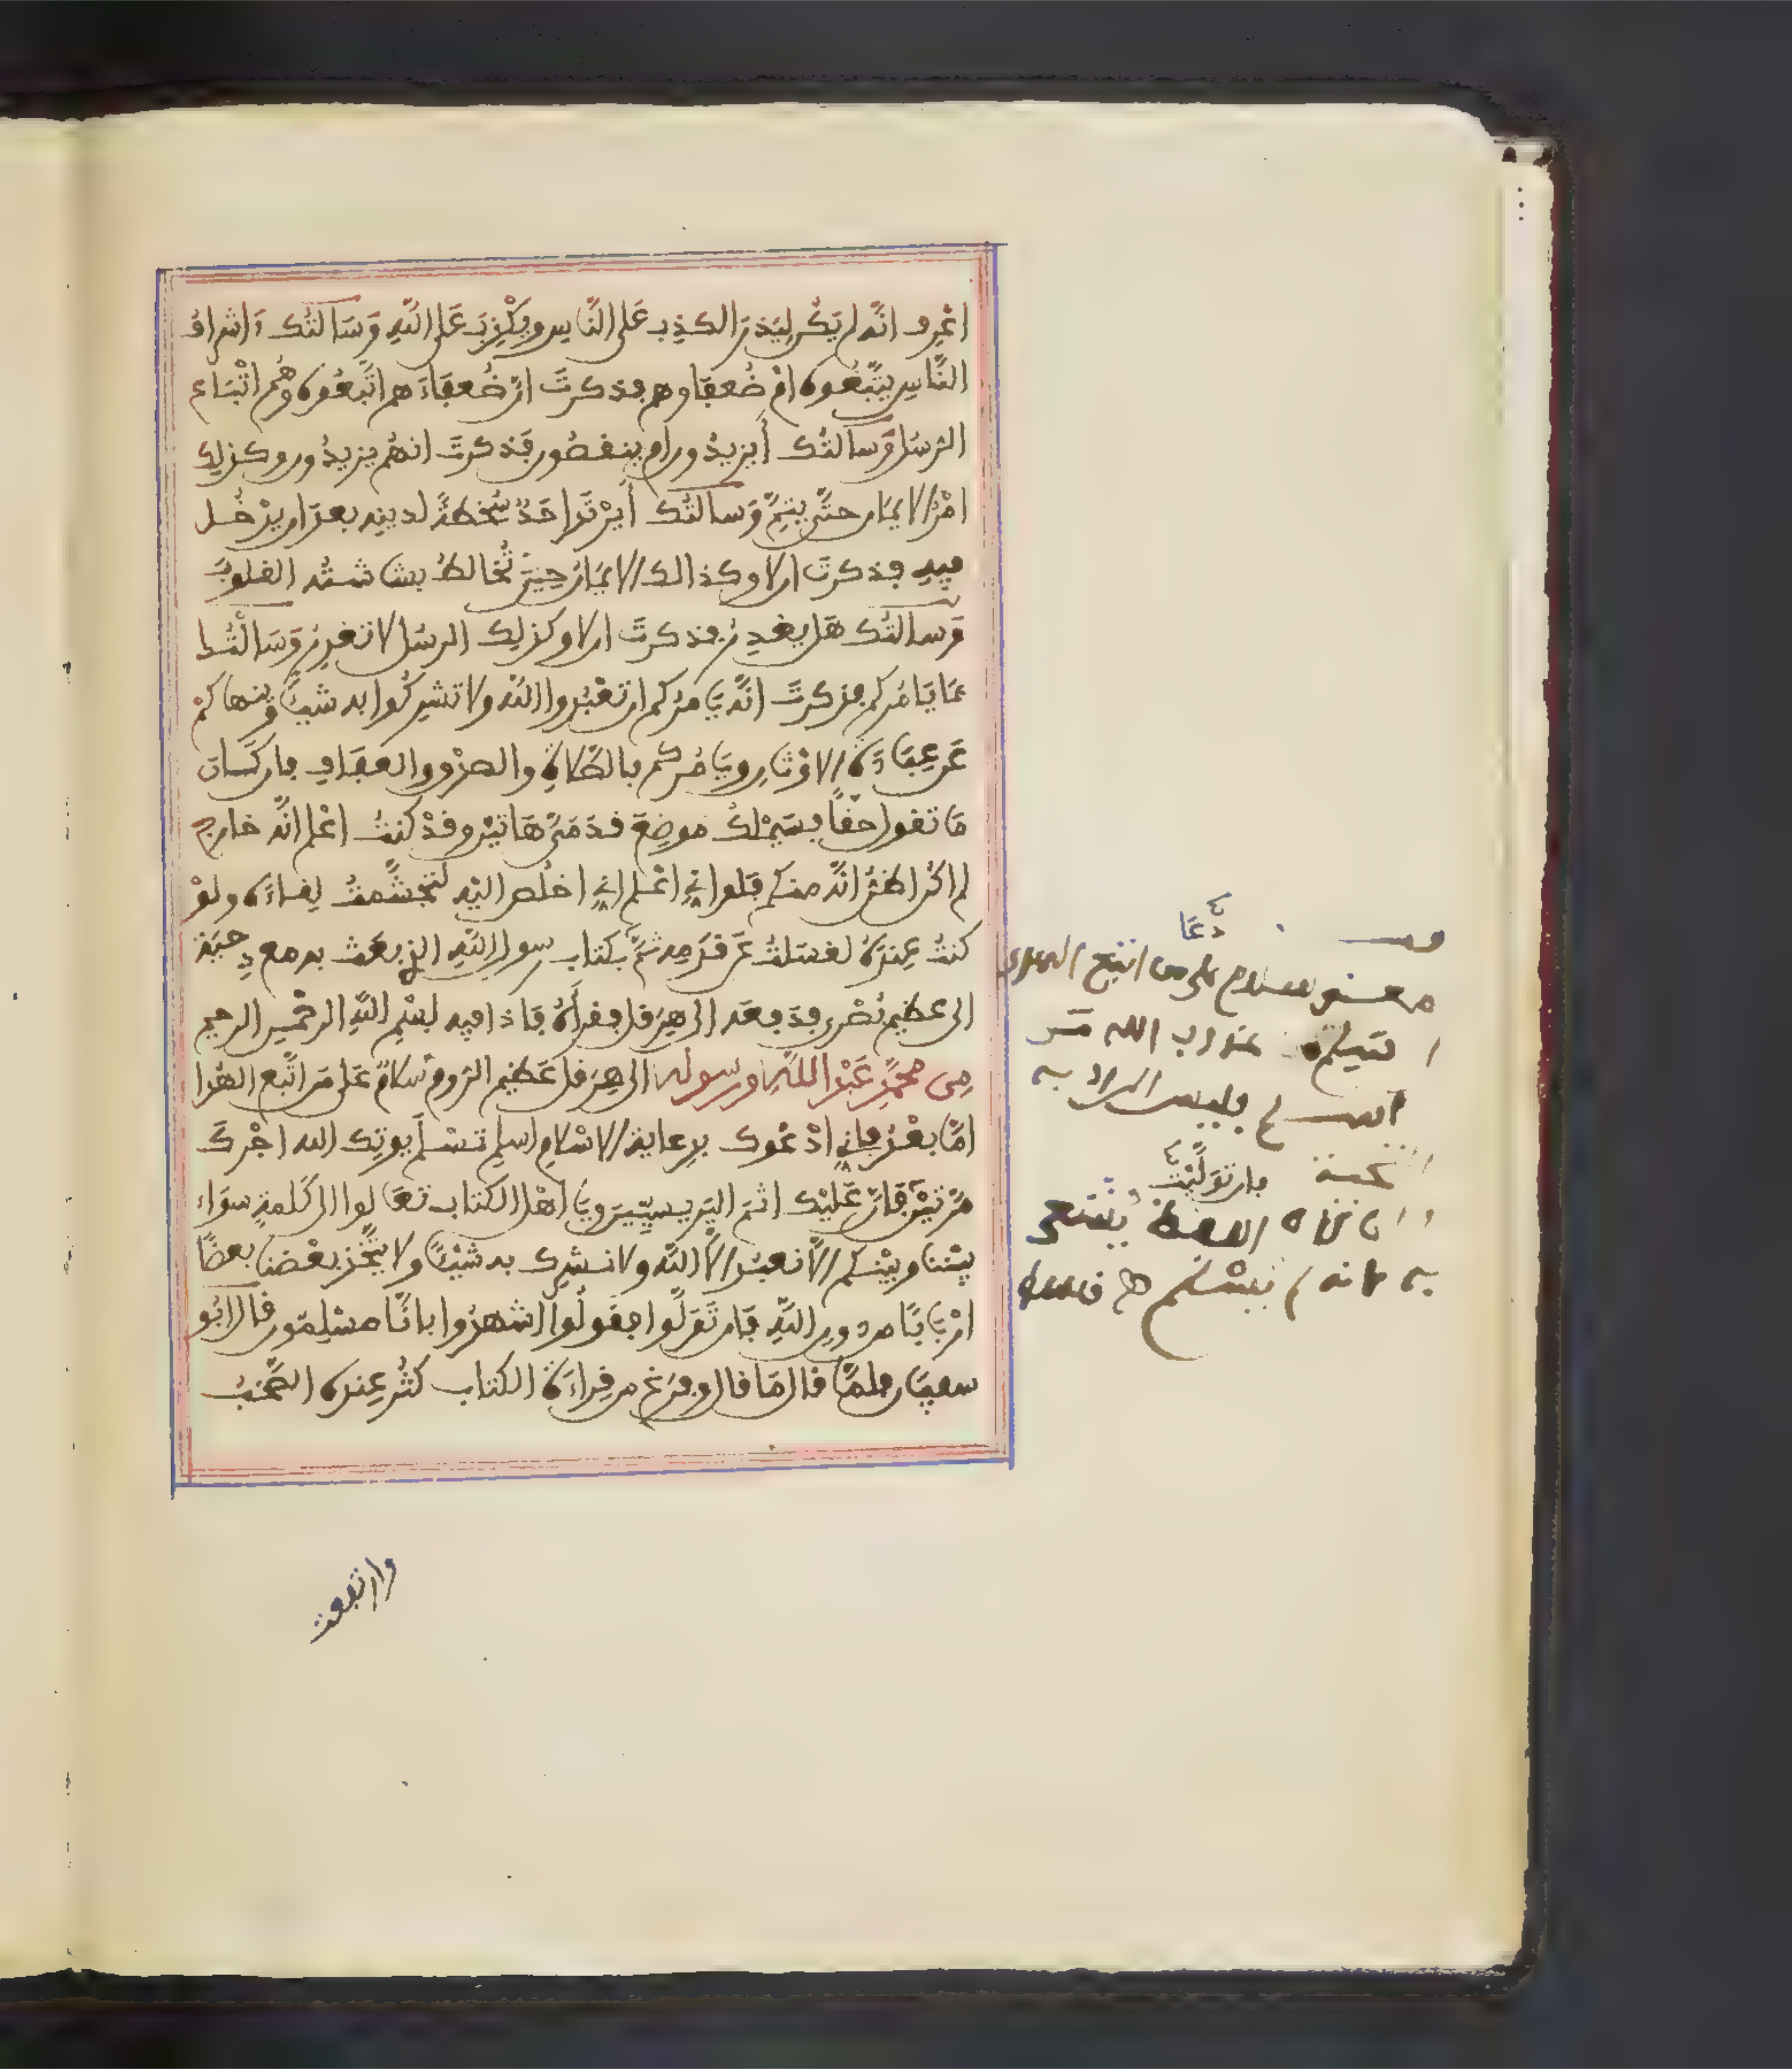 اعرف انه لم يكن ليذر الكذب على الناس ويكذب على الله وسالتك ءاشراف
الناس يتبعوه ام ضعفاوهم فذكرت ان ضعفاءهم اتبعوه وهم اتباع
الرسل وسالتك أيزيدون ام ينقصون فذكرت انهم يزيدون وكذلك
امر الايمان حتى يتم وسالتك أيرتد احد سخطة لدينه بعد ان يدخل
فيه فذكرت ان لا وكذالك الايمان حين تخالط بشاشته القلوب
وسالتك هل يغدر فذكرت ان لا وكذلك الرسل لا تغدر وسالتك
بما يامركم فذكرت انه يامركم ان تعبدوا الله ولا تشركوا به شيئا وينهاكم
عن عبادة الاوثان ويامركم بالصلاة والصدق والعفاف فان كان
ما تقول حقا فسيملك موضع قدمي هاتين وقد كنت اعلم انه خارج
لم اكن اظن انه منكم فلو اني اعلم اني اخلص اليه لتجشمت لقاءه ولو
كنت عنده لغسلت عن قدمه ثم بكتاب رسول الله الذي بعث به مع دحية
الى عظيم بصرى فدفعه الى هرقل فقرأه فاذا فيه بسم الله الرحمن الرحيم
من محمد عبد الله ورسوله الى هرقل عظيم الروم سلام على من اتبع الهدا
اما بعد فاني ادعوك بدعاية الاسلام اسلم تسلم يوتك الله اجرك
مرتين فان عليك اثم اليريسيين ويا اهل الكتاب تعالوا الى كلمة سواء
بيننا وبينكم الا نعبد الا الله ولا نشرك به شيئا ولا يتخذ بعضنا بعضا
اربابا من دون الله فان تولوا فقولوا اشهدوا بانا مسلمون قال ابو
سفيان فلما قال ما قال وفرغ من قراءة الكتاب كثر عنده الصخب
دعا
سلام على من اتبع الهدى
عذاب الله من
اسلم فليس المراد به
التحية فان توليت
اللفظ
لم يسلم
وارتفعت